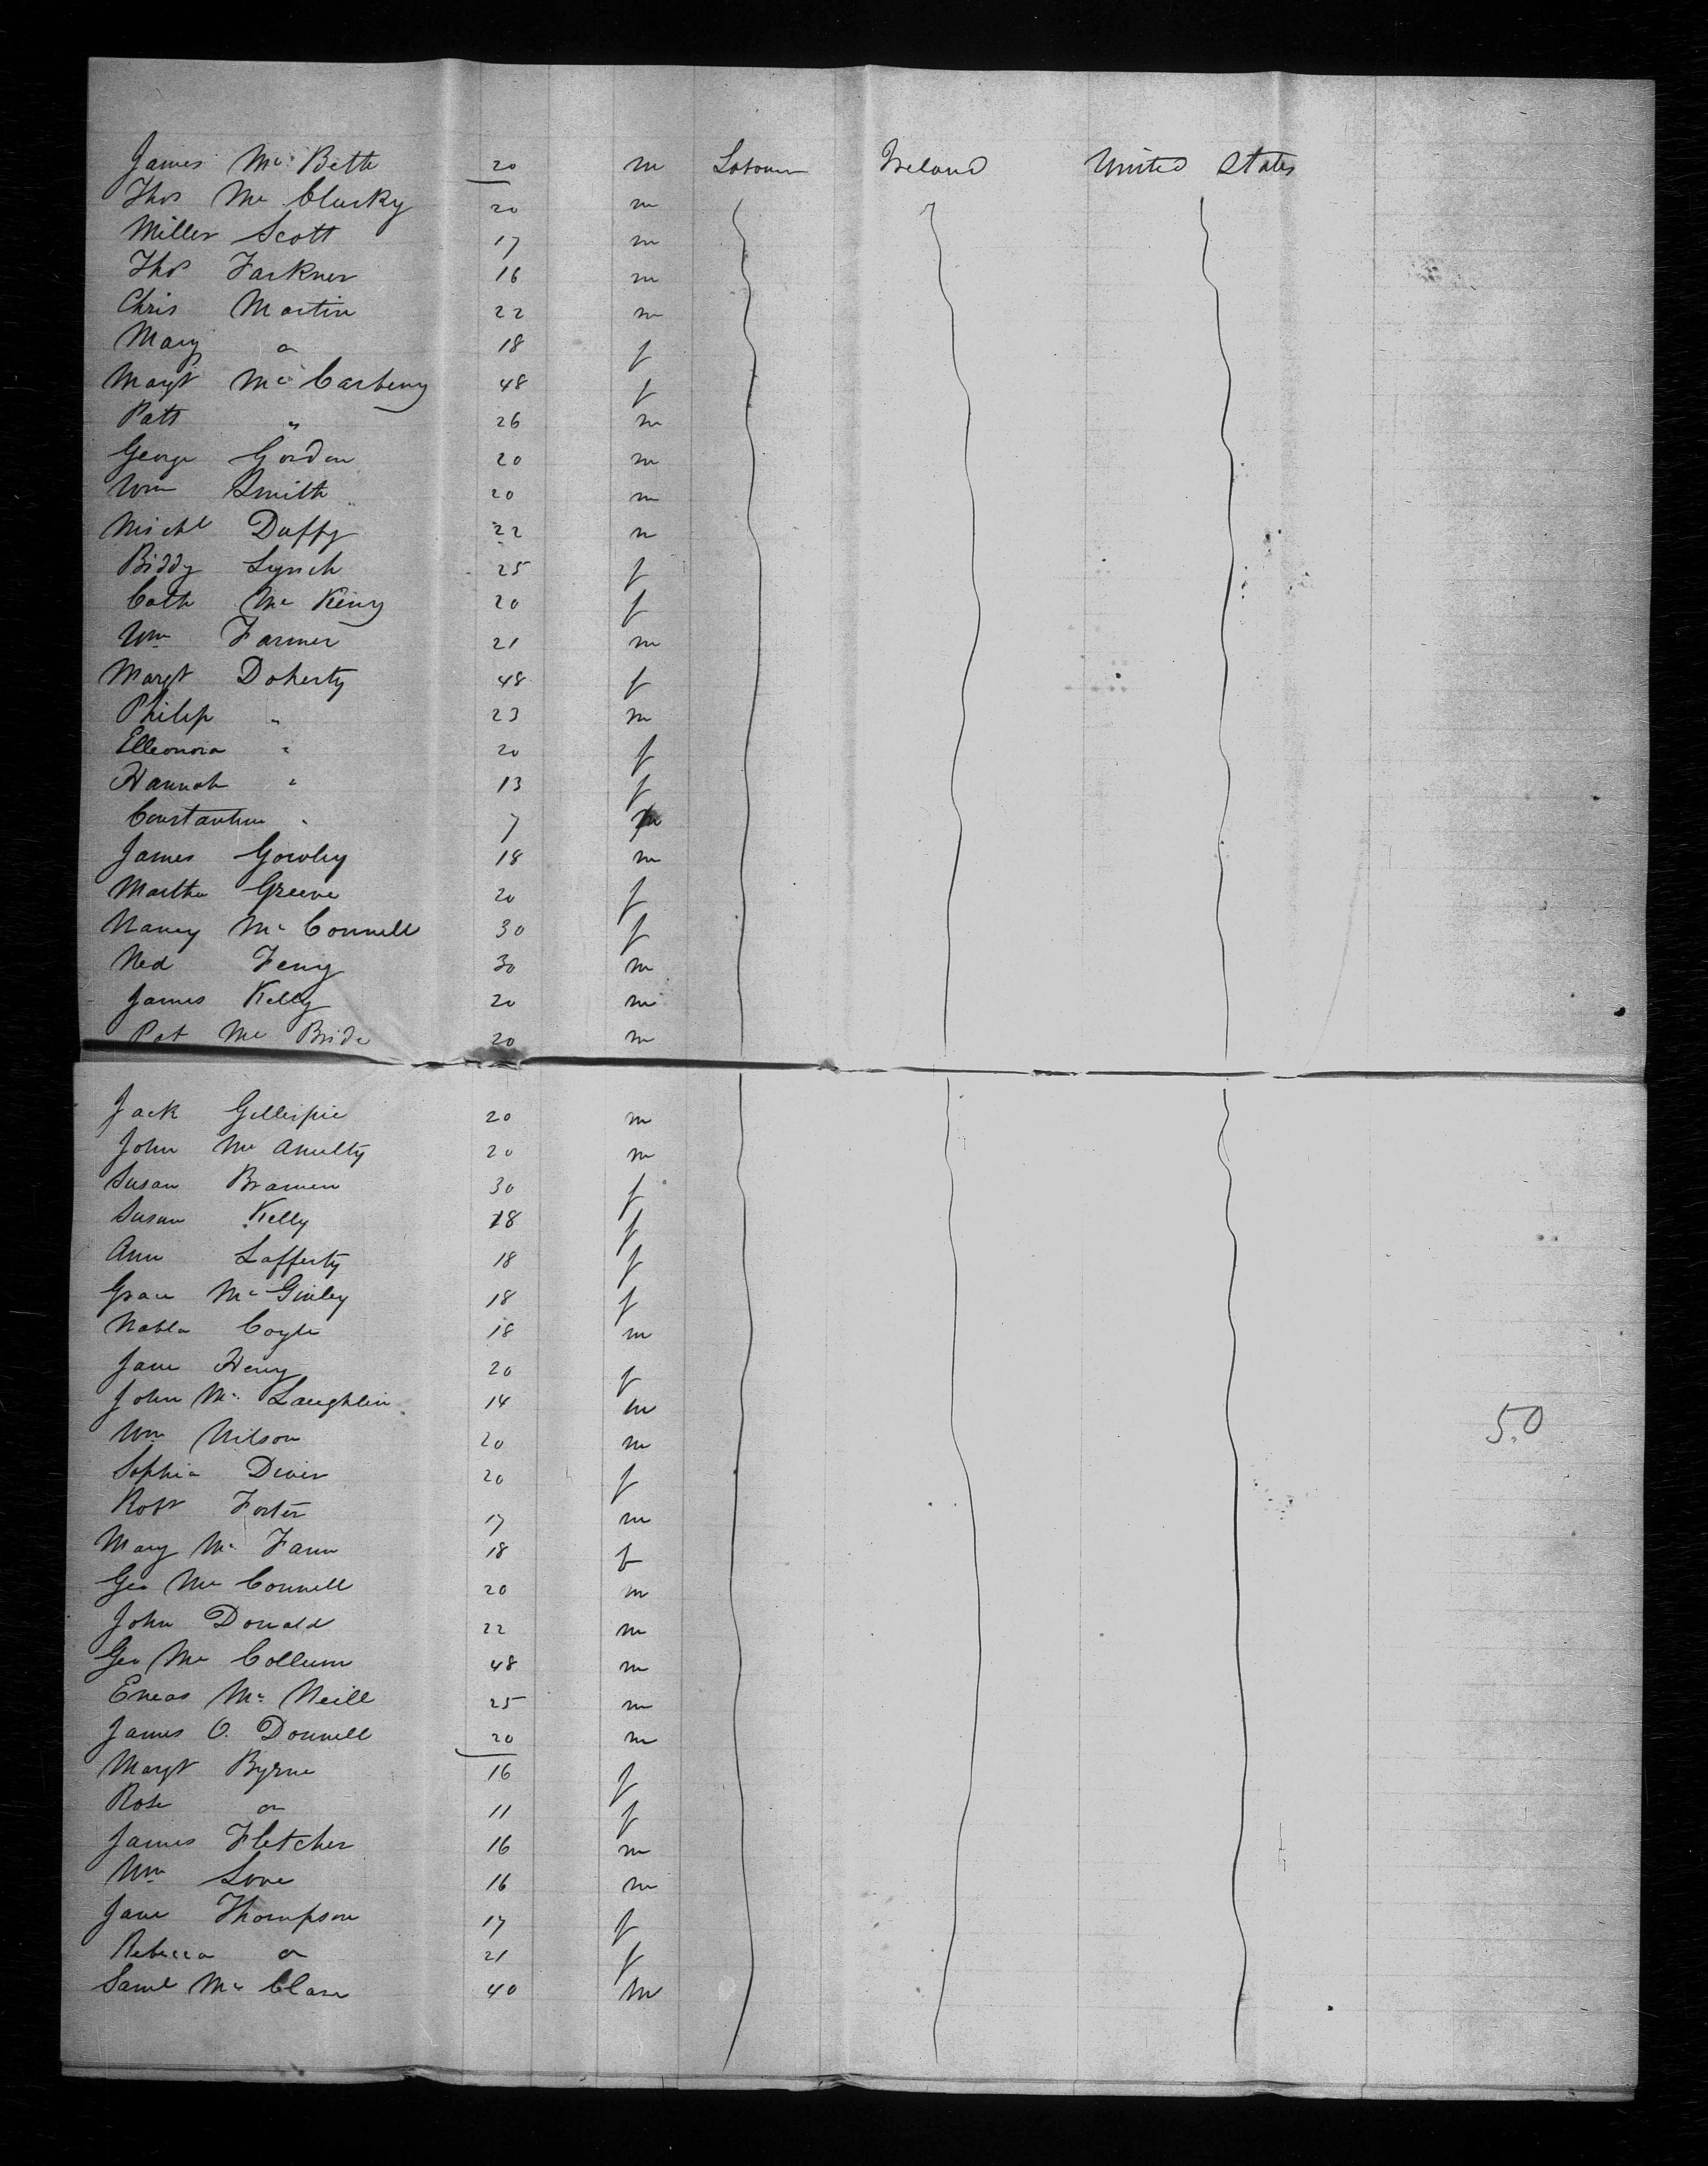 James Mc Beth 20 m Labourer Ireland United States
Thos Mc Clusky 20 m
Miller Scott 17 m
Thos Farkner 16 m
Chris Martin 22 m
Mary do 18 f
Margt Mc Carbeny 48 f
Patt " 26 m
George Gordon 20 m
Wm Smith 20 m
Michl Duffy 22 m
Biddy Lynch 25 f
Cath Mc Keny 20 f
Wm Farmer 21 m
Margt Doherty 48 f
Philip " 23 m
Elleonora " 20 f
Hannah " 13 f
Constantine " 7 m
James Gowley 18 m
Martha Greene 20 f
Nancy Mc Connell 30 f
Ned Feny 30 m
James Kelly 20 m
Pat Mc Bride 20 m
Jack Gillespie 20 m
John Mc Anulty 20 m
Susan Brannen 30 f
Susan Kelly 18 f
Ann Lafferty 18 f
Grace Mc Ginley 18 f
Nabla Coyle 18 m
Jane Henry 20 f
John Mc Laughlin 14 m
Wm Nilson 20 m
Sophia Diver 20 f
Robt Foster 17 m
Mary Mc Fann 18 f
Geo Mc Connell 20 m
John Donald 22 m
Geo Mc Collum 48 m
Eneas Mc Neill 25 m
James O. Donnell 20 m
Margt Byrne 16 f
Rose do 11 f
James Fletcher 16 m
Wm Love 16 m
Jane Thompson 17 f
Rebecca do 21 f
Saml Mc Clane 40 m
50